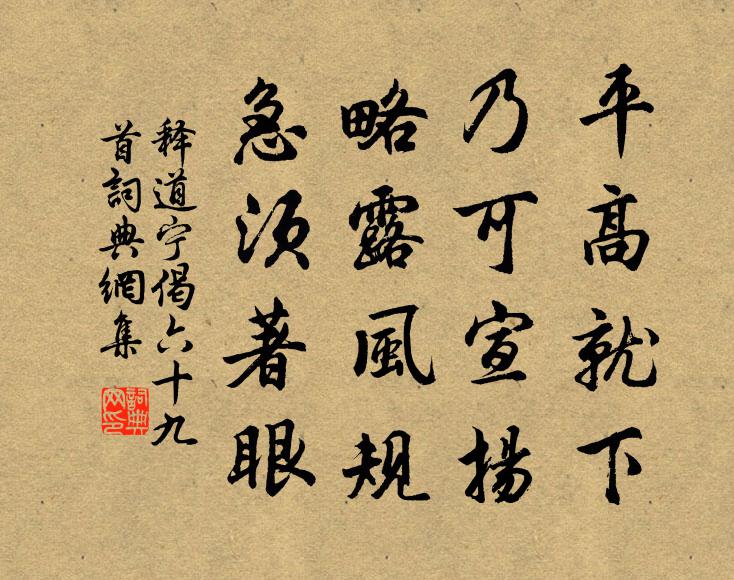 平高就下
乃可宣揚
略露風規
急須著眼
释道宁偈六十九
首詞典網集
詞典
网印